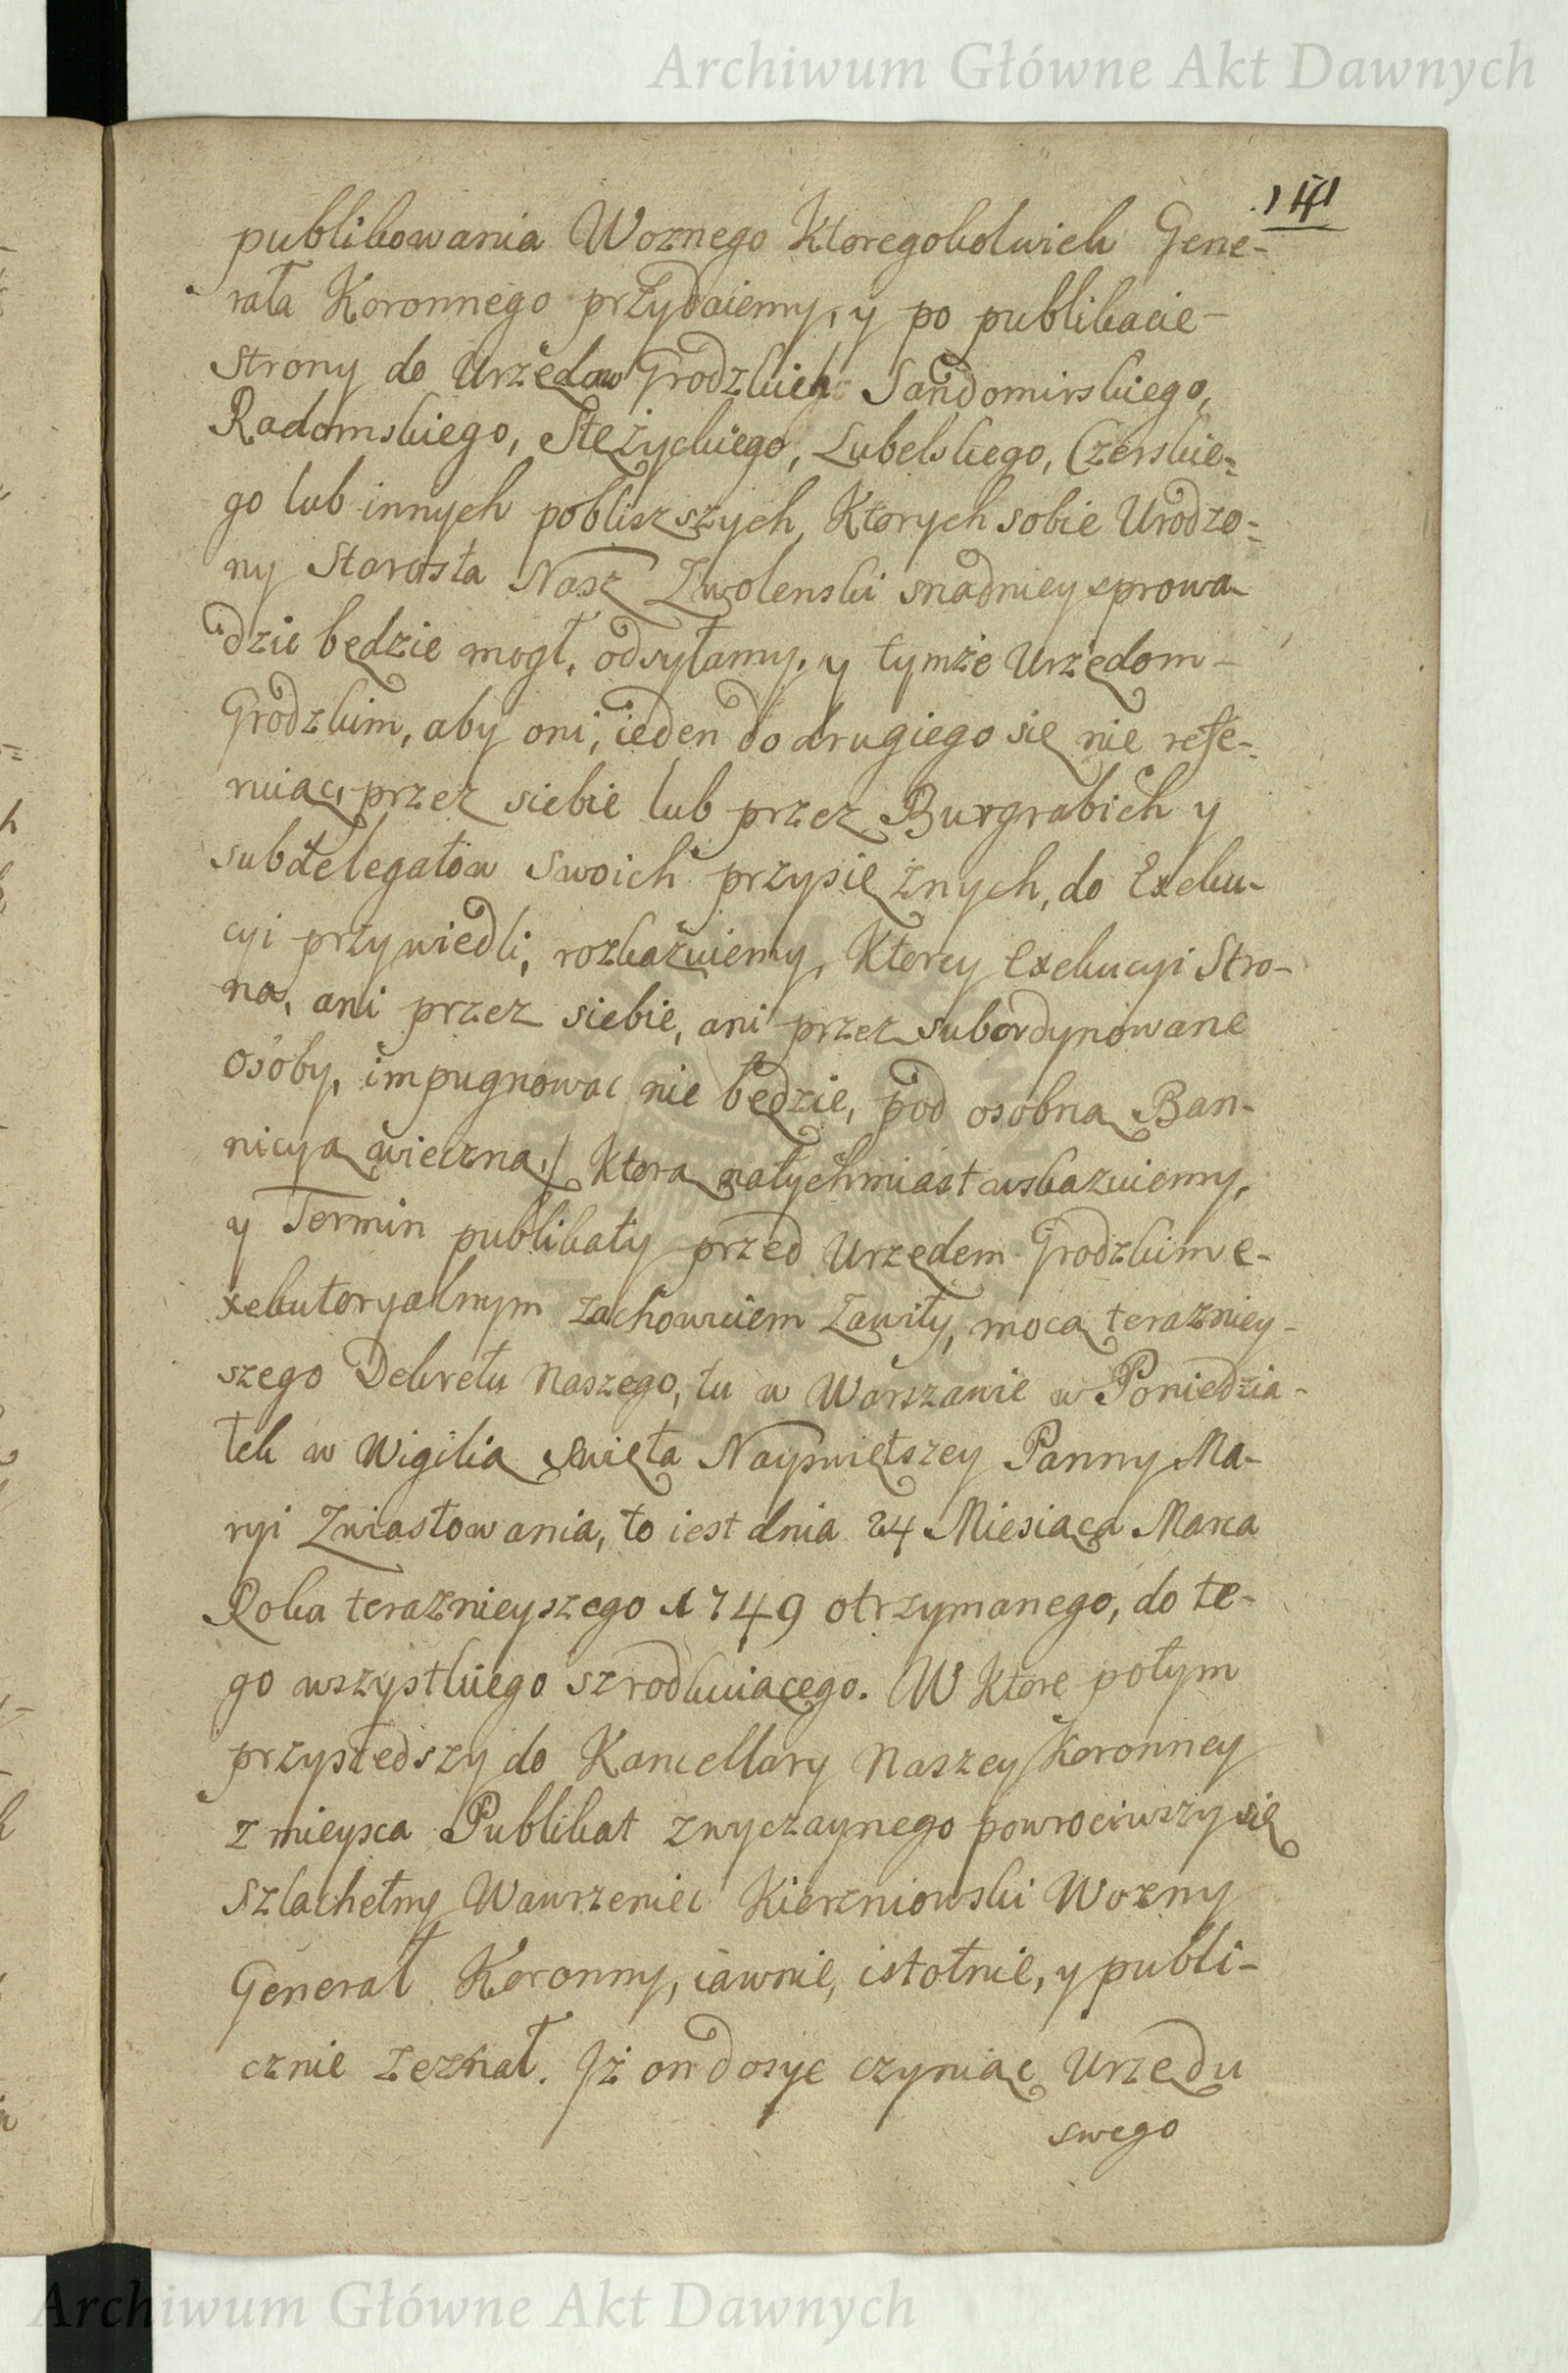 Archiwum Główne Akt Dawnych
141
publikowania Woznego Ktoregokolwiek Gene-
rała Koronnego przydaiemy, y po publikacie-
Strony do Urzędow Grodzkich Sandomirskiego,
Radomskiego, Stężyckiego, Lubelskiego, Czerskie=
go lub innych pobliszszych, Ktorych sobie Urodzo=
ny Starosta Nasz Zwolenski snadniey sprowa-
dzic będzie mogł, odsyłamy, y tymże Urzędom-
Grodzkim, aby oni, ieden do drugiego się nie refe-
ruiąc, przez siebie lub przez Burgrabich y
subdelegatow swoich przysiężnych, do Exeku-
cyi przywiedli, rozkazuiemy, Ktorey Exekucyi Stro-
na, ani przez siebie, ani przez subordynowane
osoby, impugnowac nie będzie, pod osobną Ban-
nicyą wieczną, / Ktorą natychmiast wskazuiemy,
y Termin publikaty przed Urzędem Grodzkim e-
xekutoryalnym zachowuiem Zawity, mocą terazniey-
szego Dekretu Naszego, tu w Warszawie w Poniedzia-
łek w Wigilią Swięta Nayswiętszey Panny Ma-
ryi Zwiastowania, to iest dnia 24 Miesiąca Marca
Roku terazniejszego 1749 otrzymanego, do te-
go wszystkiego szrodkuiącego. W Ktore potym
przyszedszy do Kancellary Naszey Koronney
z mieysca Publikat zwyczaynego powrociwszy się
Szlachetny Wawrzeniec Kierzniowski Wozny
Generał Koronny, iawnie, istotnie, y publi-
cznie zeznał. Iż on dosyc czyniąc Urzędu
swego
Archiwum Główne Akt Dawnych